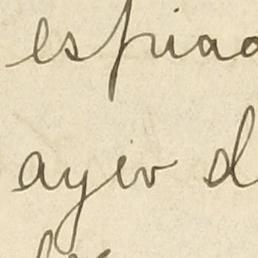 espiad
ayer d